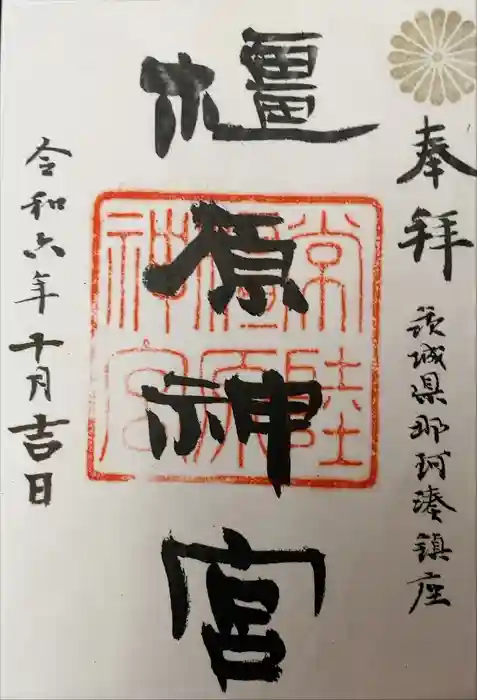 奉拝
茨城県那珂湊鎮座
橿原神宮
常陸
橿原
神宮
令和六年十月吉日